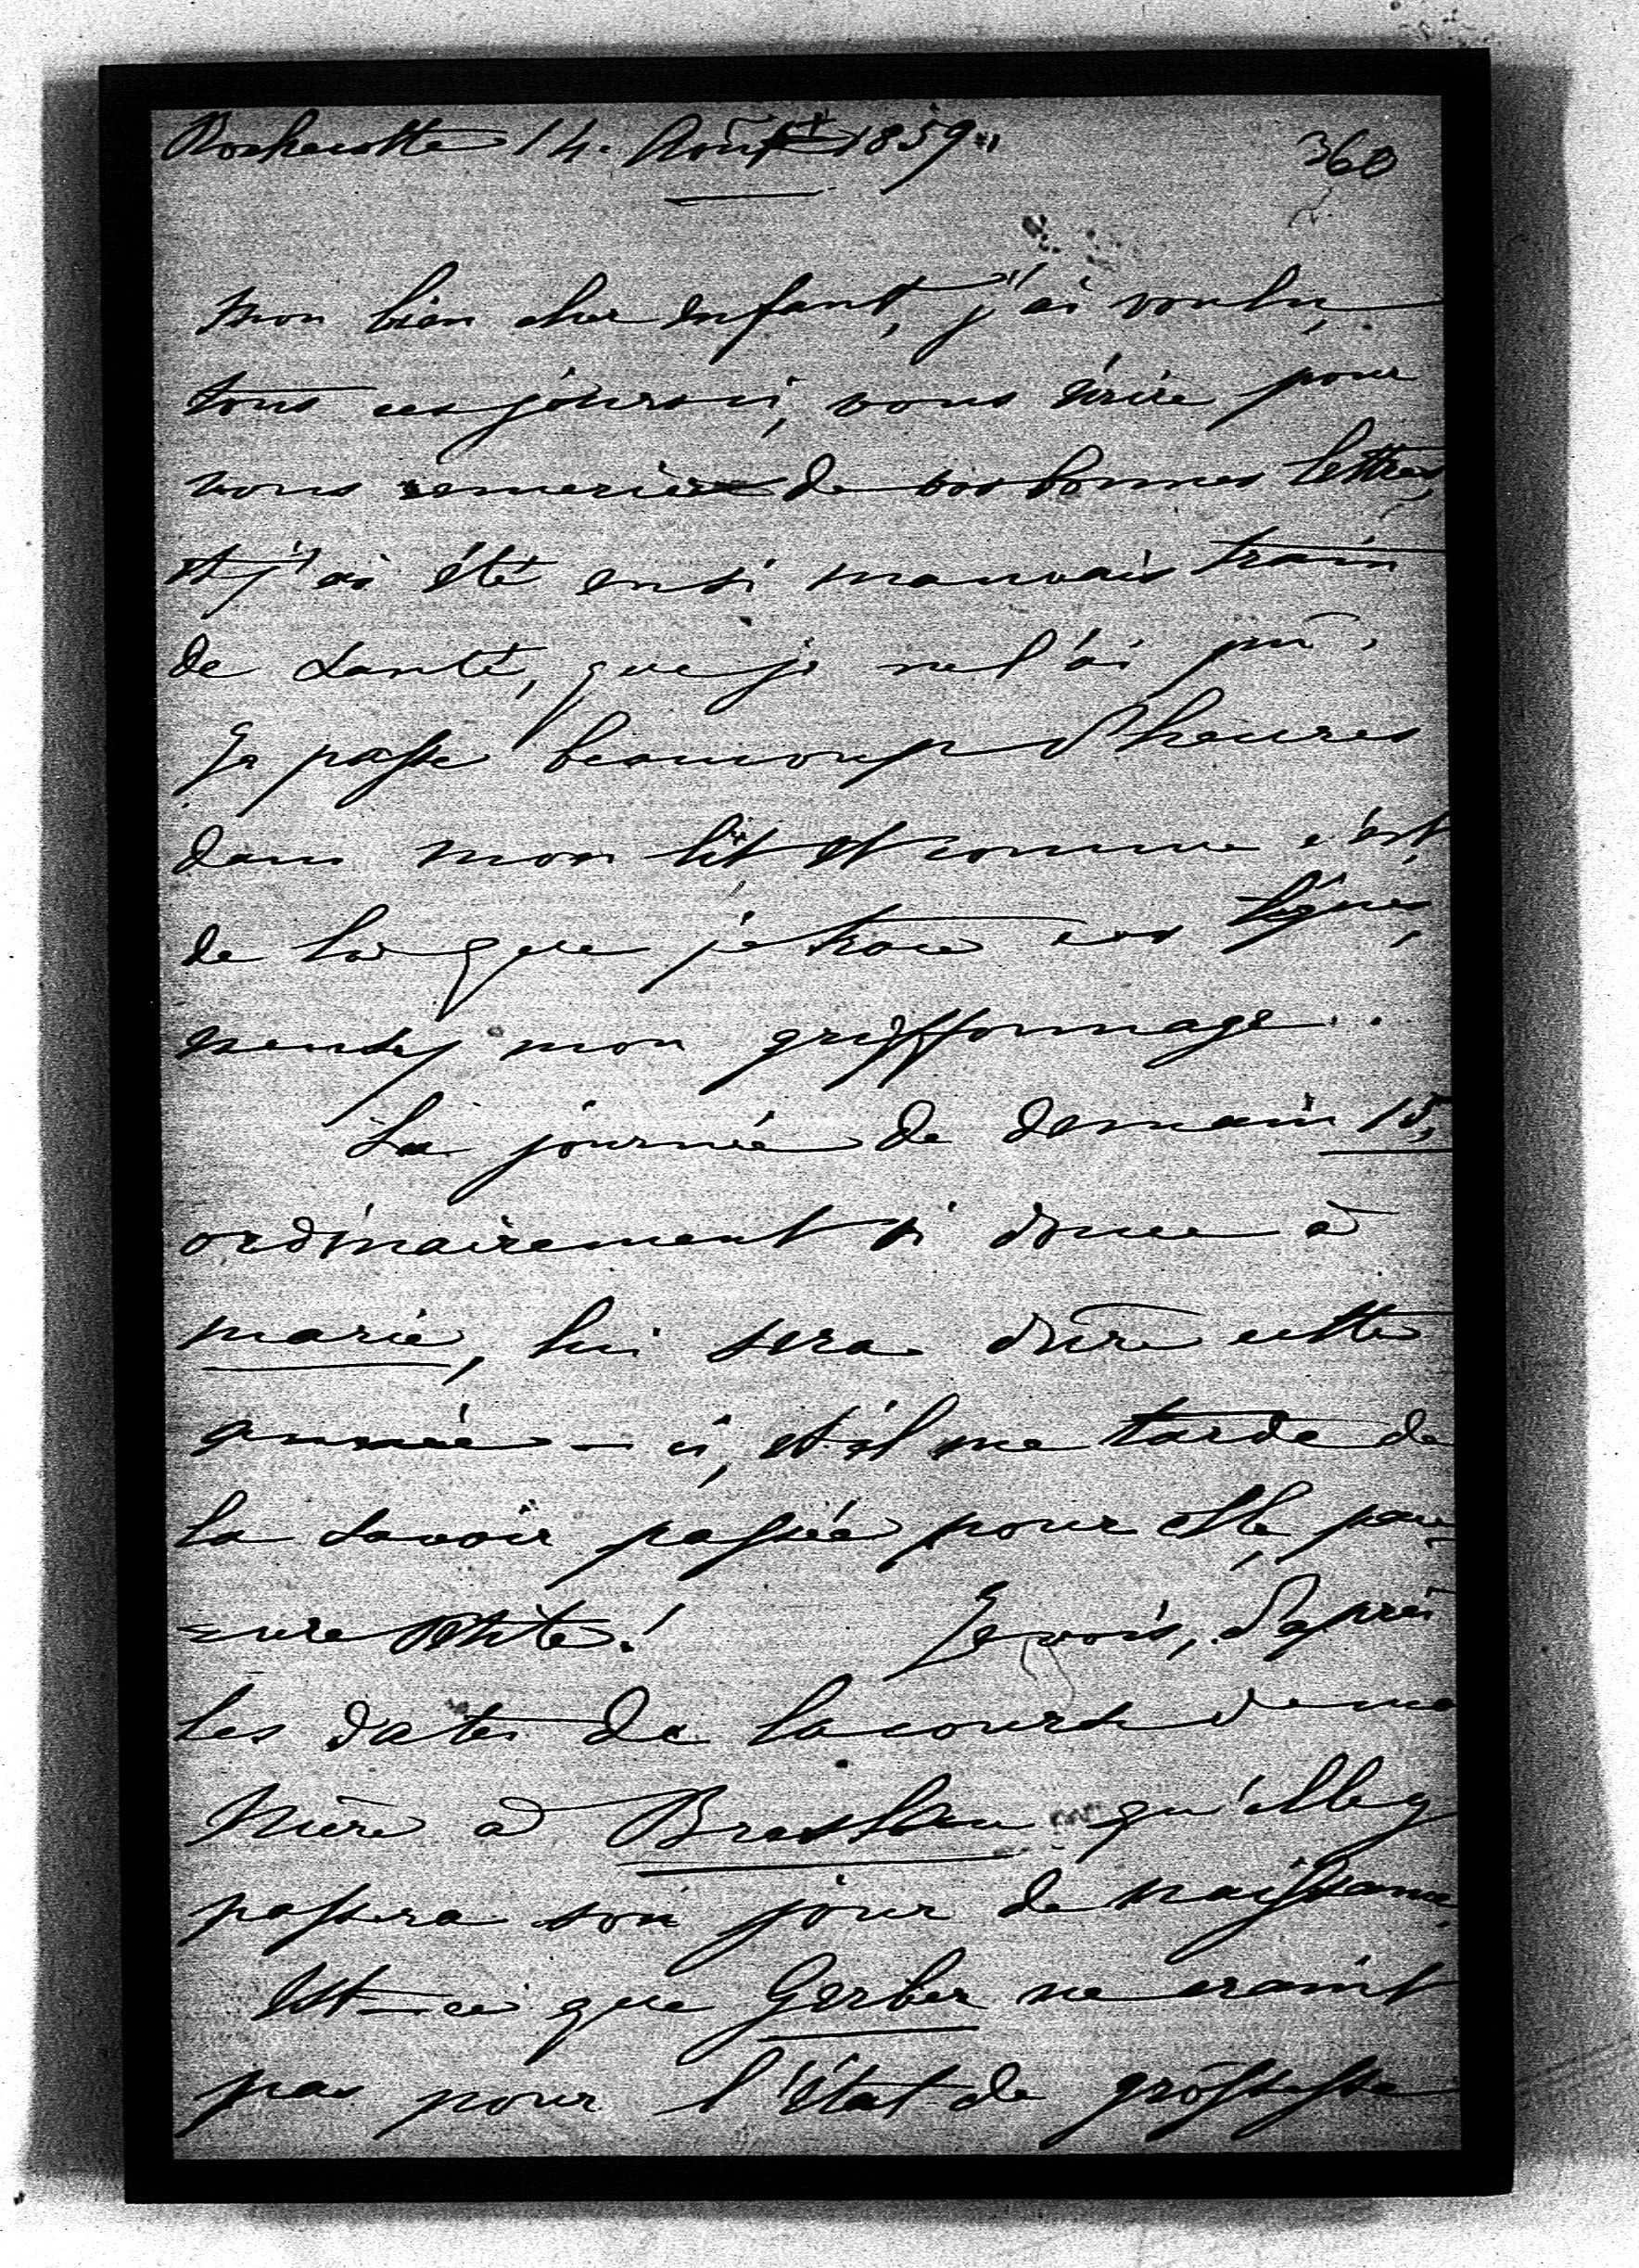 Rochecotte 14. Août 1859.
360
mon bien cher enfant, j'ai voulu,
tous ces jours-ci, vous écrire pour
vous remercier de vos bonnes lettres,
et j'ai été en si mauvais train
de santé, que je ne l'ai pû.
Je passe beaucoup d'heures
dans mon lit et comme c'est
de là que je trace ces lignes,
excusez mon griffonnage..
La journée de demain 15,
ordinairement si douce à
marie, lui sera dûre cette
année-ci, et il me tarde de
la savoir passée pour elle, pau-
=vre petite! Je vois, d'après
les dates de la course de ma
Nièce à Breslau qu'elle y
passera son jour de naissance.
Est-ce que Gerber ne craint
pas pour l'état de grossesse